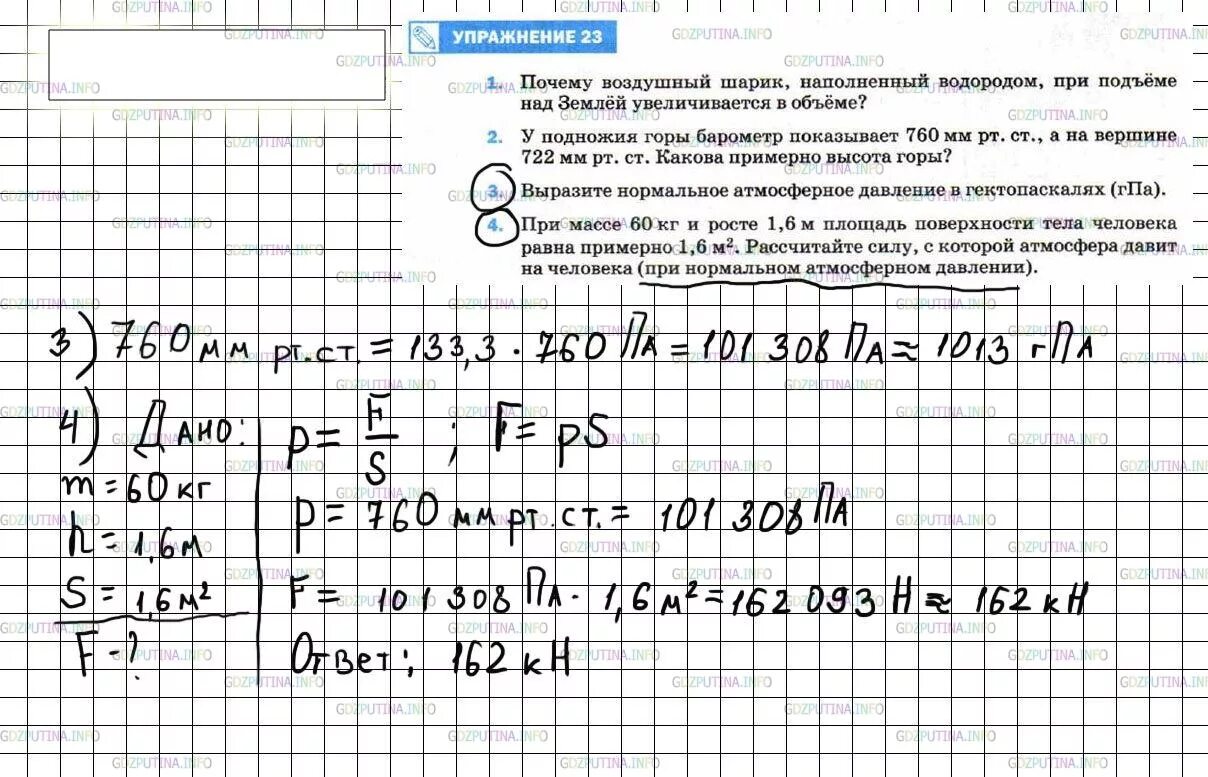 УПРАЖНЕНИЕ 23
1. Почему воздушный шарик, наполненный водородом, при подъёме
над Землёй увеличивается в объёме?
2. У подножия горы барометр показывает 760 мм рт. ст., а на вершине
722 мм рт. ст. Какова примерно высота горы?
3. Выразите нормальное атмосферное давление в гектопаскалях (гПа).
4. При массе 60 кг и росте 1,6 м площадь поверхности тела человека
равна примерно 1,6 м². Рассчитайте силу, с которой атмосфера давит
на человека (при нормальном атмосферном давлении).
3) 760 мм рт.ст. = 133,3 · 760 Па = 101 308 Па ≈ 1013 гПа
4) Дано:
m = 60 кг
h = 1,6 м
S = 1,6 м²
F - ?
p = F/S ; F = pS
p = 760 мм рт.ст. = 101 308 Па
F = 101 308 Па · 1,6 м² = 162 093 Н ≈ 162 кН
Ответ: 162 кН
GDZPUTINA.INFO